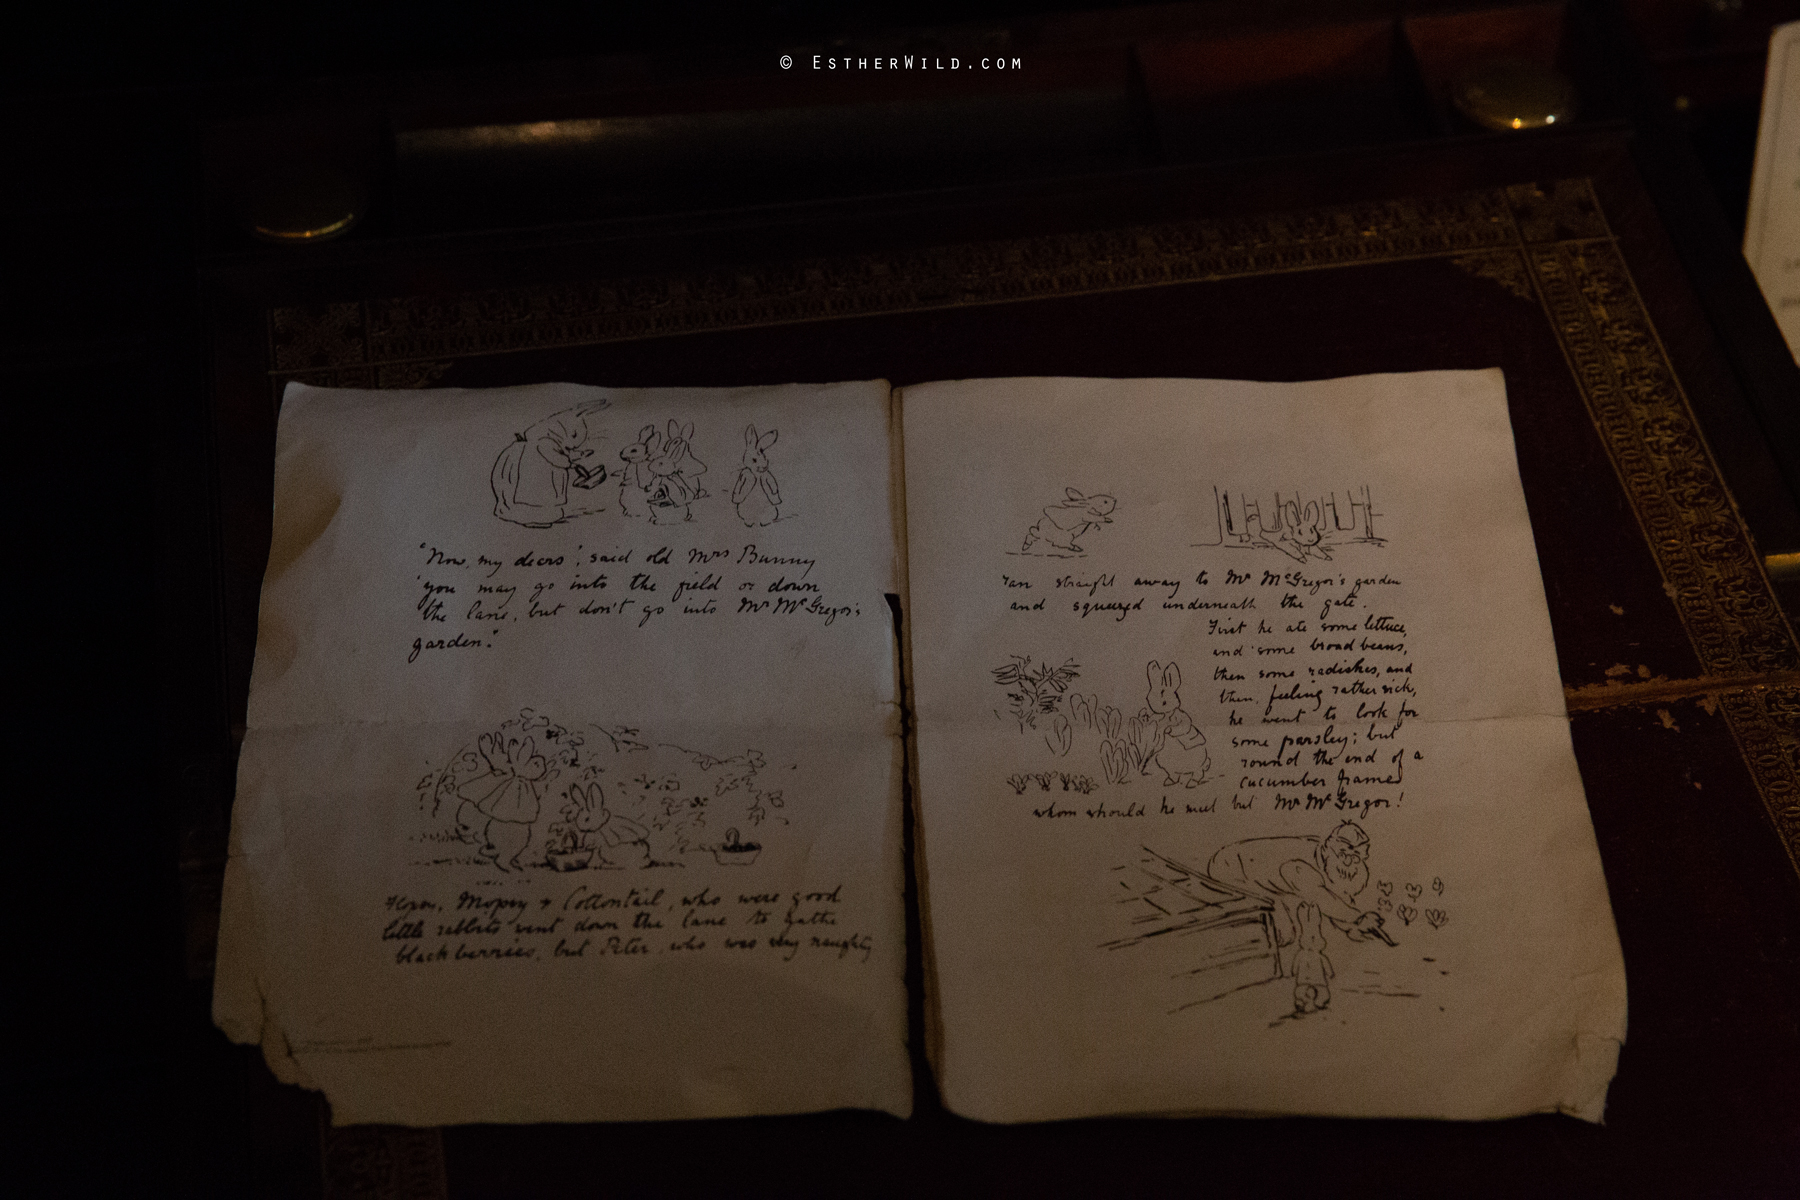 © EstherWild.com
"Now, my dears", said old Mrs Bunny
"you may go into the field or down
the lane, but don't go into Mr McGregor's
garden."
Flopsy, Mopsy & Cottontail, who were good
little rabbits went down the lane to gather
blackberries, but Peter, who was very naughty
ran straight away to Mr McGregor's garden
and squeezed underneath the gate.
First he ate some lettuce,
and some broad beans,
then some radishes, and
then, feeling rather sick,
he went to look for
some parsley; but
round the end of a
cucumber frame
whom should he meet but Mr McGregor!